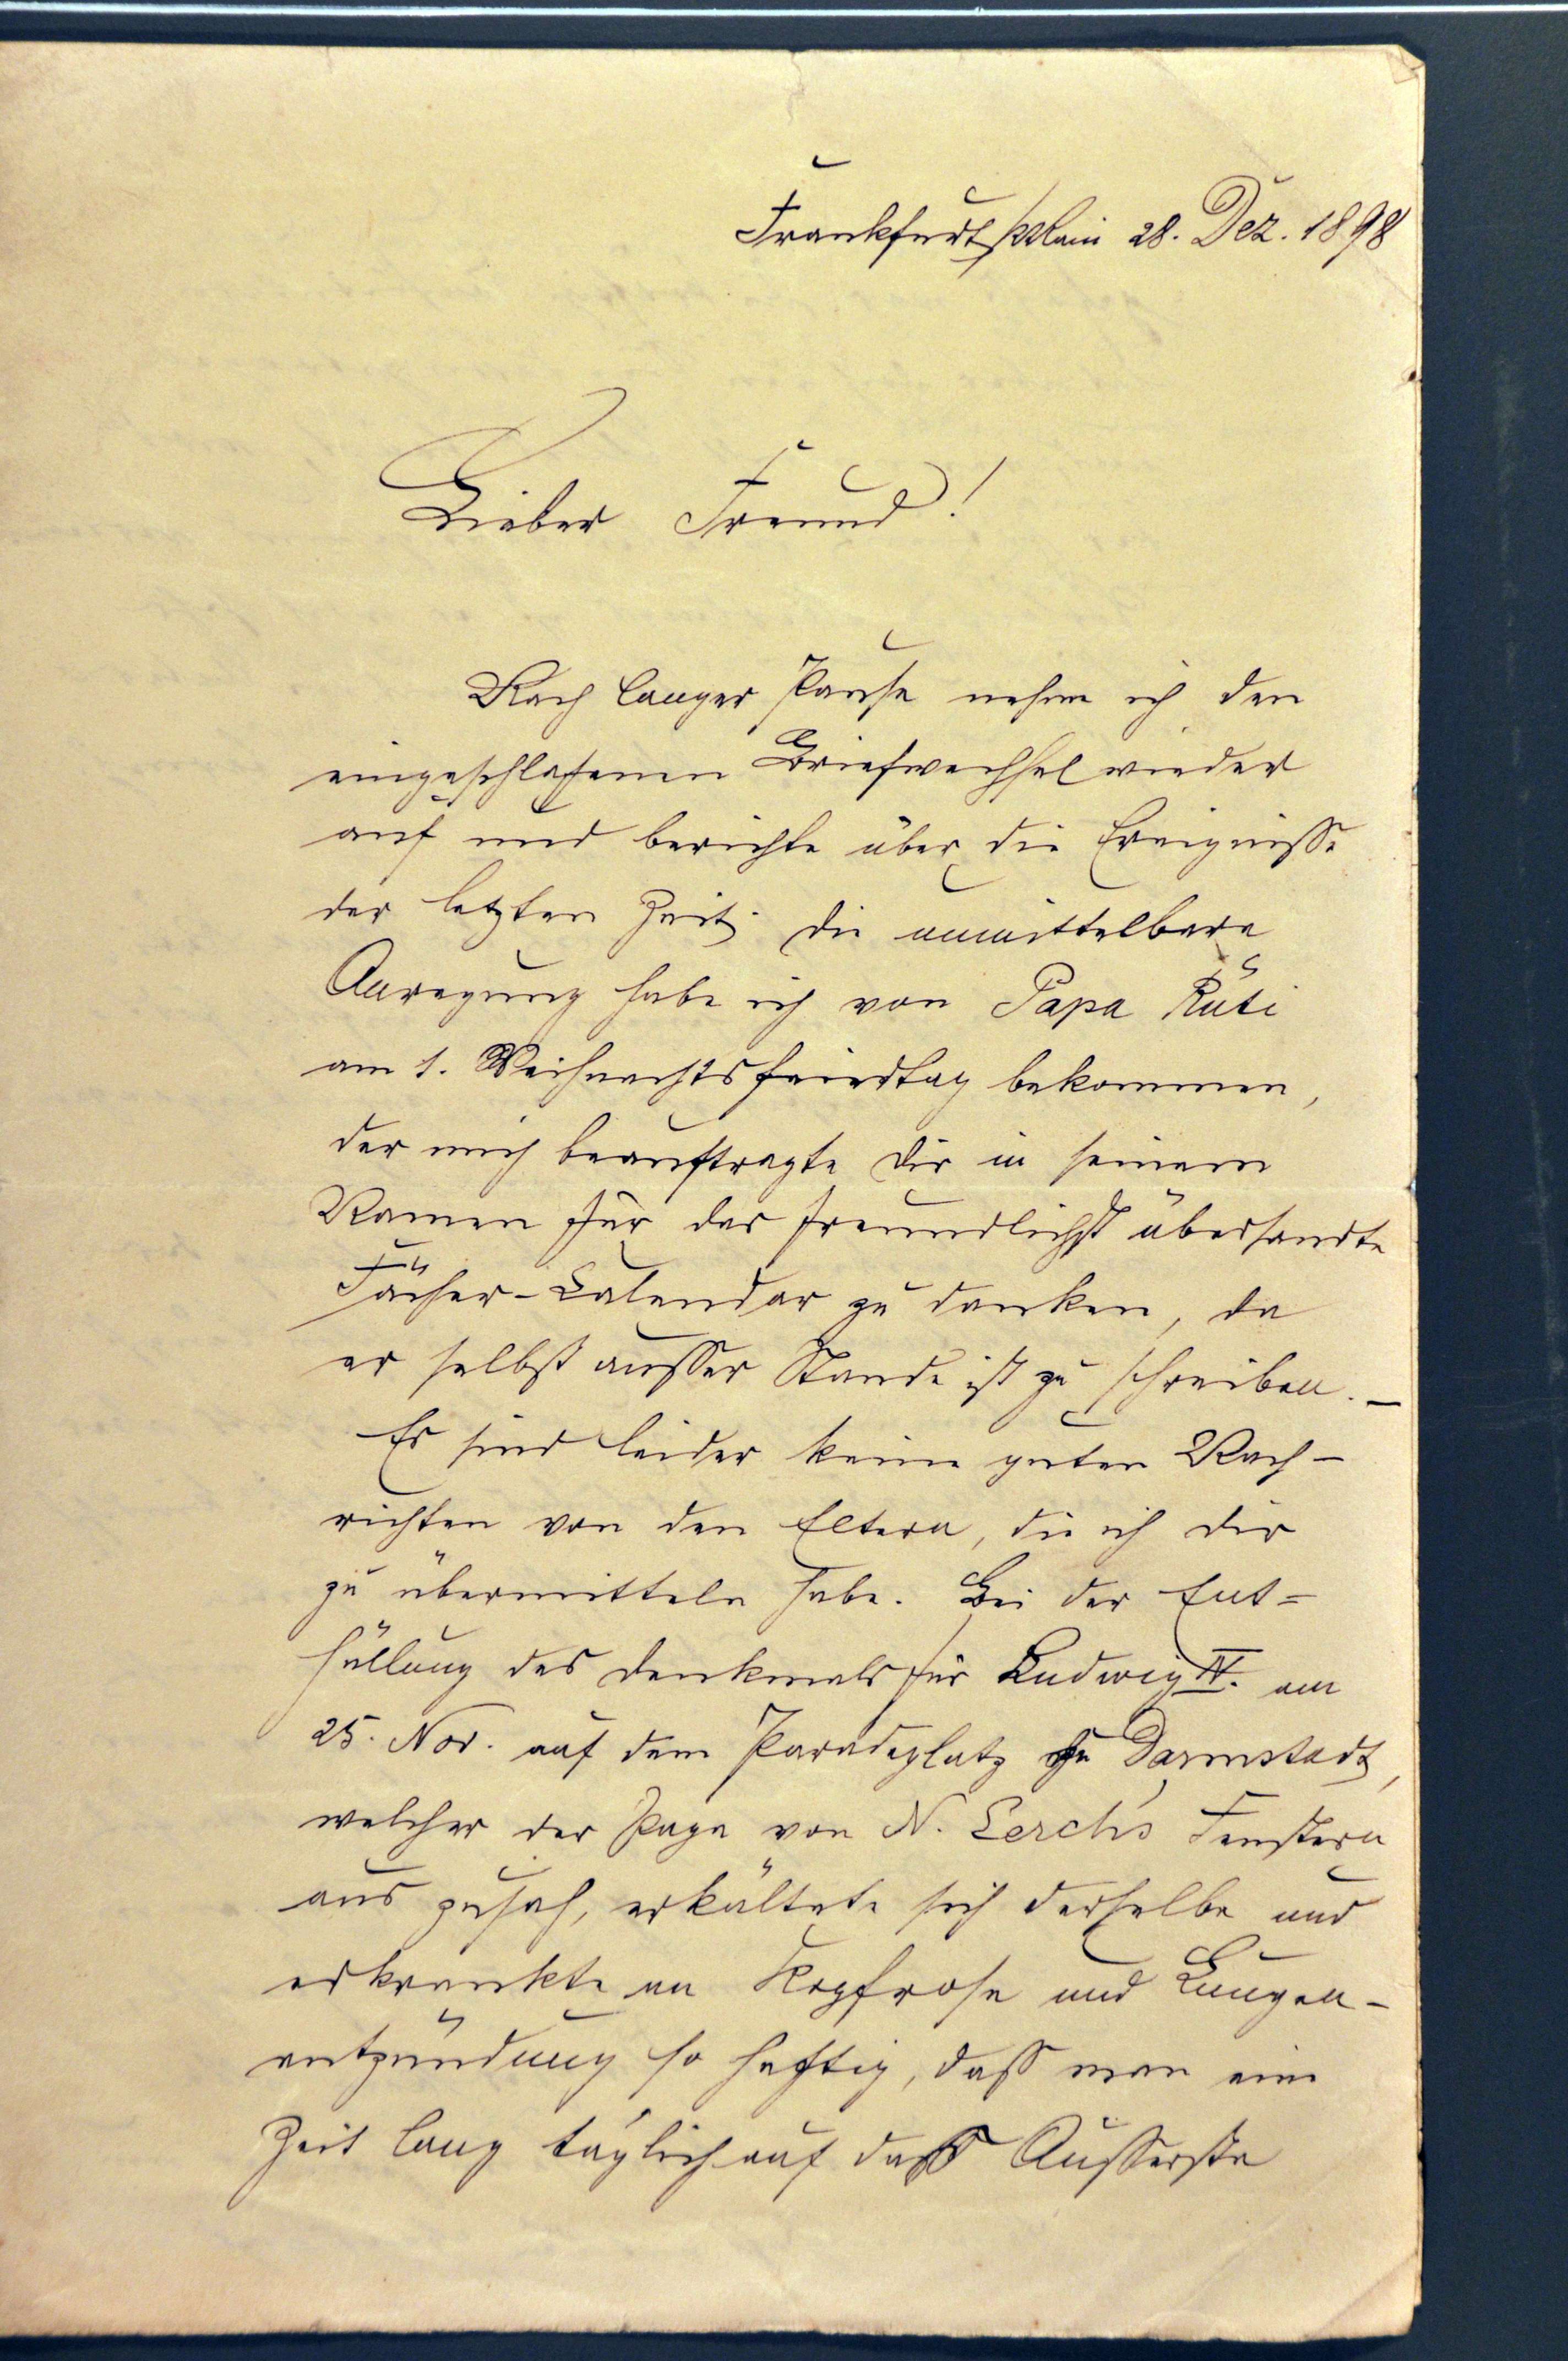 Frankfurt/Main 28. Dez. 1898
Lieber Freund!
Nach langer Pause nehme ich den
eingeschlafenen Briefwechsel wieder
auf und berichte über die Ereignisse
der letzten Zeit. Die unmittelbare
Anregung habe ich von Papa Küti
am 1. Weihnachtsfeiertag bekommen,
der mich beauftragte Dir in seinem
Namen für der freundlichst übersandte
Fächer-Calendar zu danken, da
er selbst ausser Stande ist zu schreiben. –
Es sind leider keine guten Nach-
richten von den Eltern, die ich Dir
zu übermitteln habe. Bei der Ent=
hüllung des Denkmals für Ludwig IV. am
25. Nov. auf dem Paradeplatz zu Darmstadt,
welcher der Papa von N. Lerch's Fenstern
aus zusah, erkältete sich derselbe und
erkrankte an Kopfrose und Lungen-
entzündung so heftig, dass man eine
Zeit lang täglich auf das Äusserste